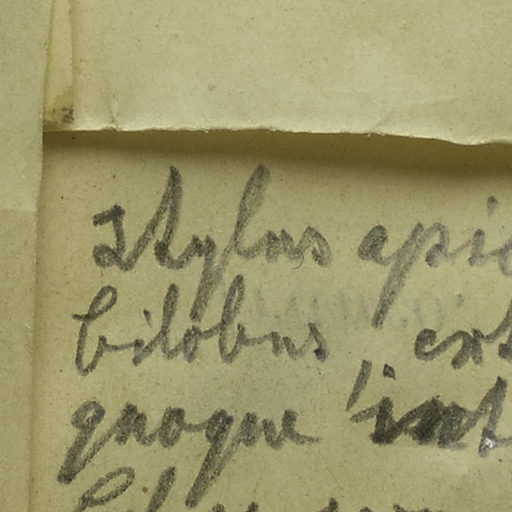 Stylus apic
bilobus ext
quoque int